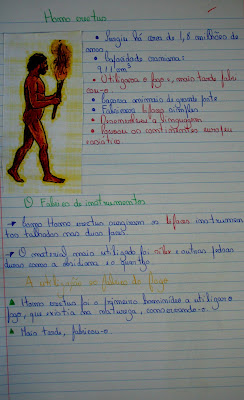 Homo erectus
• Surgiu há cerca de 1,8 milhões de
anos
• Capacidade craniana:
911 cm³
• Utilizava o fogo, mais tarde fabri
cou-o.
• Caçava animais de grande porte
• Fabricava bifaces simples
• Desenvolveu a linguagem
• Povoou os continentes europeu
e asiático
Fabrico de instrumentos
Como Homo erectus surgiram os bifaces instrumen
tos talhados nas duas faces
O material mais utilizado foi sílex e outras pedras
duras como a obsidiana e o quartzo
A utilização e fabrico do fogo
Homo erectus foi o primeiro hominídeo a utilizar o
fogo, que existia na natureza, conservando-o.
Mais tarde, fabricou-o.